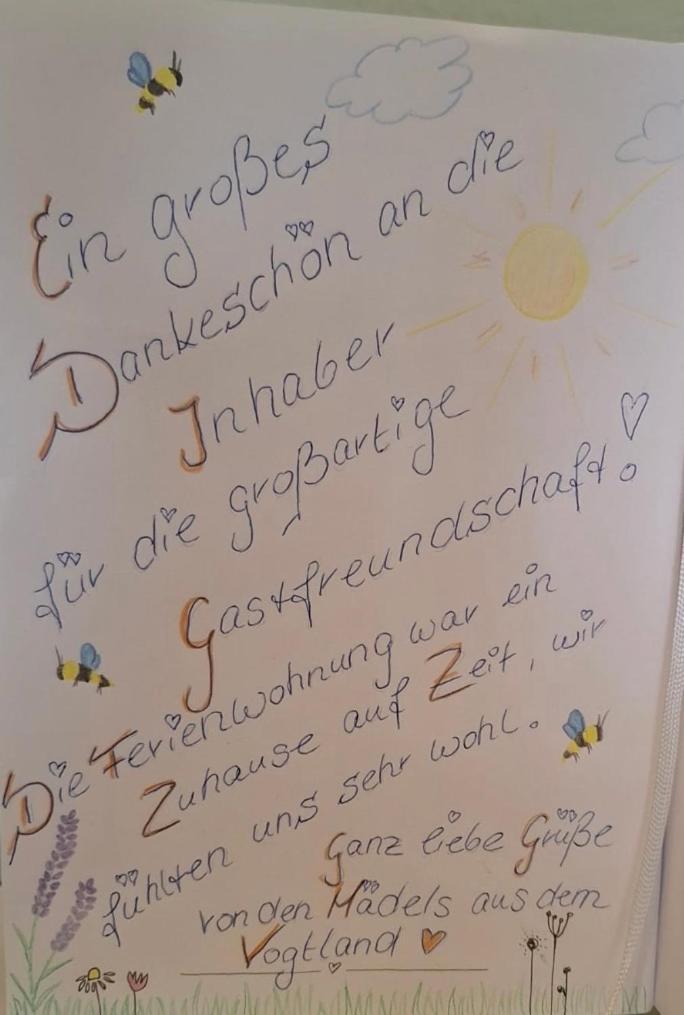 Ein großes
Dankeschön an die
Inhaber
für die großartige
Gastfreundschaft!
Die Ferienwohnung war ein
Zuhause auf Zeit, wir
fühlten uns sehr wohl.
Ganz liebe Grüße
von den Mädels aus dem
Vogtland